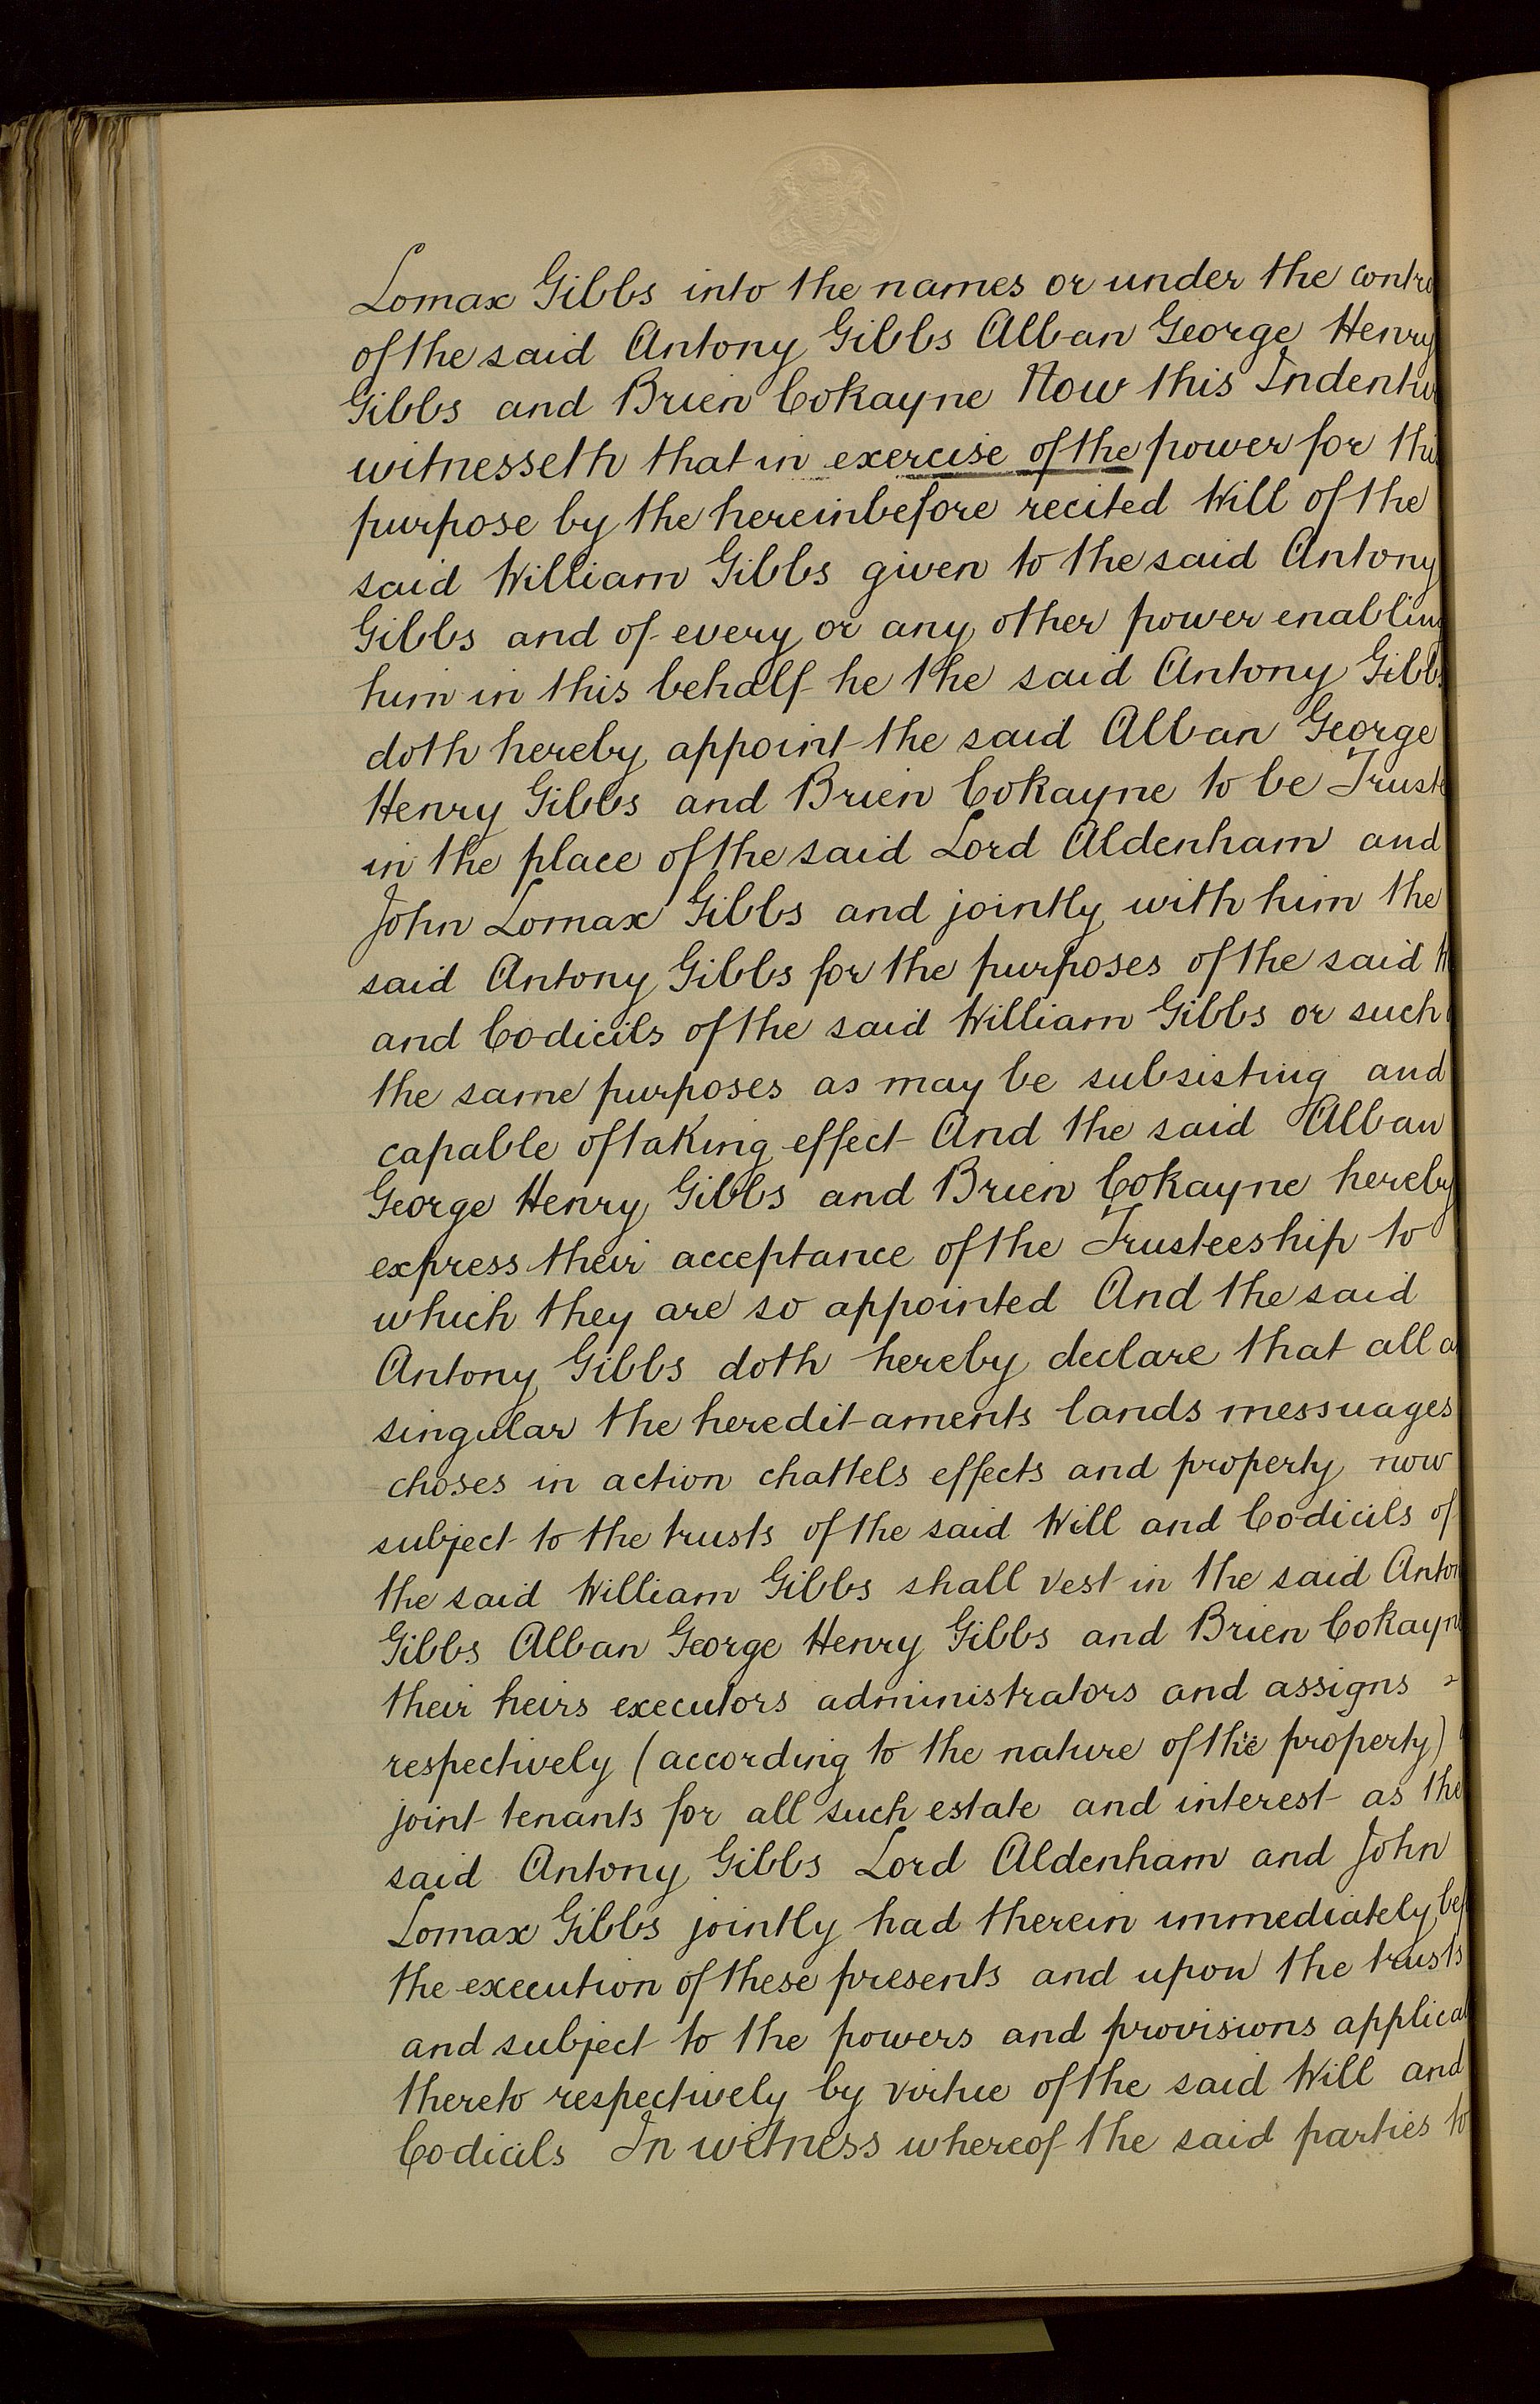 Lomax Gibbs into the names or under the contro
of the said Antony Gibbs Alban George Henry
Gibbs and Brien Cokayne Now this Indentu
witnesseth that in exercise of the power for thi
purpose by the hereinbefore recited Will of the
said William Gibbs given to the said Antony
Gibbs and of every or any other power enabling
him in this behalf he the said Antony Gibbs
doth hereby appoint the said Alban George
Henry Gibbs and Brien Cokayne to be Truste
in the place of the said Lord Aldenham and
John Lomax Gibbs and jointly with him the
said Antony Gibbs for the purposes of the said
and Codicils of the said William Gibbs or such
the same purposes as may be subsisting and
capable of taking effect And the said Alban
George Henry Gibbs and Brien Cokayne hereby
express their acceptance of the Trusteeship to
which they are so appointed And the said
Antony Gibbs doth hereby declare that all a
singular the hereditaments lands messuages
choses in action chattels effects and property now
subject to the trusts of the said Will and Codicils of
the said William Gibbs shall vest in the said Anton
Gibbs Alban George Henry Gibbs and Brien Cokayne
their heirs executors administrators and assigns
respectively (according to the nature of the property)
joint tenants for all such estate and interest as the
said Antony Gibbs Lord Aldenham and John
Lomax Gibbs jointly had therein immediately bef
the execution of these presents and upon the trusts
and subject to the powers and provisions applica
thereto respectively by virtue of the said Will and
Codicils In witness whereof the said parties to